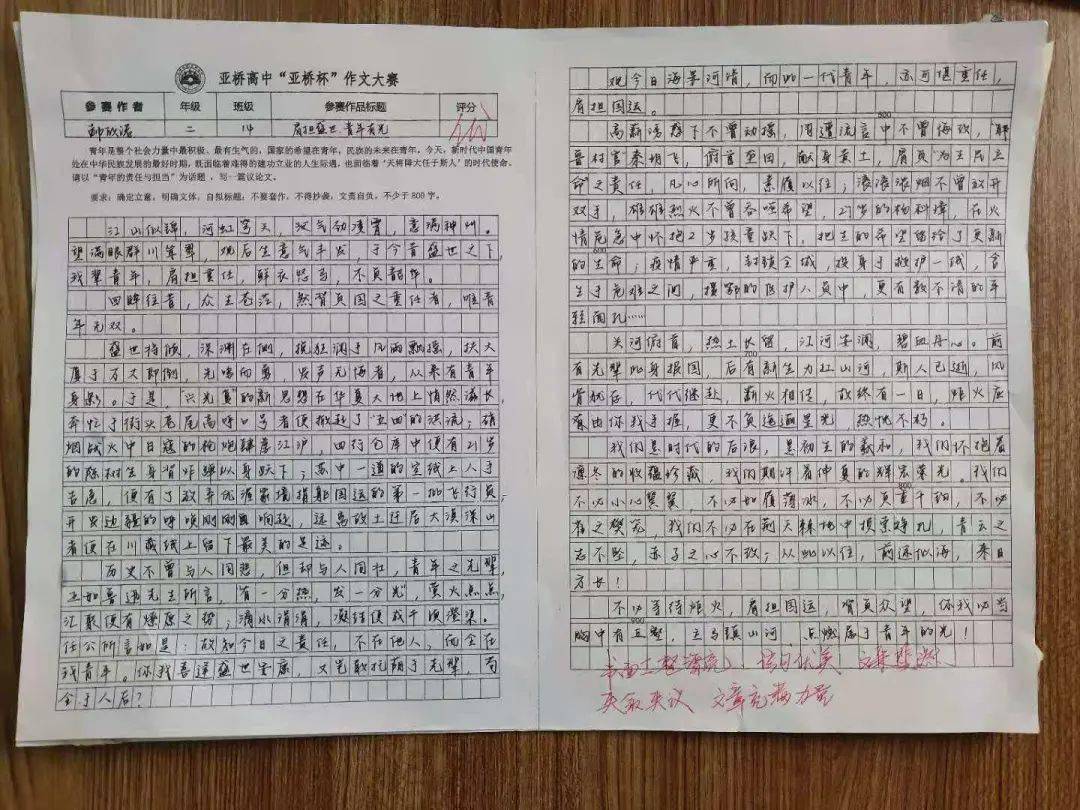 亚桥高中“亚桥杯”作文大赛
参赛作者 年级 班级 参赛作品标题 评分
二 14 肩担盛世，青年有光
青年是整个社会力量中最积极、最有生气的，国家的希望在青年，民族的未来在青年，今天，新时代中国青年
处在中华民族发展的最好时期，既面临着难得的建功立业的人生际遇，也面临着“天将降大任于斯人”的时代使命。
请以“青年的责任与担当”为话题，写一篇议论文。
要求：确定立意，明确文体，自拟标题；不要套作，不得抄袭，文责自负，不少于800字。
江山似锦，河虹穹天，汉气劲凌霄，意满神州。
望满眼群川耸翠，观后生意气丰发，于今昔盛世之下，
我辈青年，肩担重任，鲜衣怒马，不负韶华。
回眸往昔，众生苍茫，然背负国之重任者，唯青
年无双。
盛世将倾，深渊在侧，挽狂澜于风雨飘摇，扶大
厦于万丈即倒，先啼向勇，发声无悔者，从来有青年
身影。于是，“兴光复”的新思想在华夏大地上悄然滋长，
奔忙于街头巷尾高呼口号者便掀起了“五四”的洪流；硝
烟战火中日寇的枪炮肆虐江沪，四行仓库中便有21岁
的陈树生身背炸弹以身跃下；苏中一道的宣纸上人手
告急，便有了放弃优渥家境捐躯国运的第一批飞行员；
开发边疆的呼唤刚刚响起，远离故土迁居大漠深山
者便在川藏线上留下最美的足迹。
历史不曾与人同悲，但却与人同壮，青年之光辉，
正如鲁迅先生所言，“有一分热，发一分光”，萤火点点，
汇聚便有燎原之势；滴水涓涓，凝结便成千顷澄染。
任公所言如是：故知今日之责任，不在他人，而全在
我青年。你我喜逢盛世安康，又岂敢托祖于先辈，苟
全于人后？
观今日海晏河清，而如一代青年，亦可堪重任，
肩担国运。
高薪清群下不曾动摇，周遭流言中不曾悔改，耶
鲁村官秦玥飞，俯首至田，献身黄土，肩负“为生民立
命”之责任，凡心所向，素履以往；滚滚浓烟不曾放开
双手，雄雄烈火不曾吞咽希望，27岁的杨科璋，在火
情危急中怀抱2岁孩童跃下，把生的希望留给了更新
的生命；疫情严重，封锁全城，投身于救护一线，舍
生于危难之间，援鄂的医护人员中，更有数不清的年
轻面孔……
关河俯首，热土长留，江河安澜，碧血丹心。前
有先辈以身报国，后有新生为扛山河，斯人已逝，风
骨犹存，代代继赴，薪火相传，故终有一日，炬火应
有由你我手握，更不负迢迢星光，热忱不朽。
我们是时代的后浪，是初生的羲和，我们怀抱着
凛冬的收蕴珍藏，我们期许着仲夏的辉宏荣光。我们
不必小心翼翼，不必如履薄冰，不必负重千钧，不必
有之樊笼，我们不必在荆天棘地中损衷挣扎，青云之
志不坠，赤子之心不改；从此以往，前途似海，来日
方长！
不必等待炬火，肩担国运，背负众望，你我必当
胸中有丘壑，立马镇山河，点燃属于青年的光！
500
600
700
800
900
书面工整漂亮，语句优美，文采斐然
夹叙夹议 文章充满力量